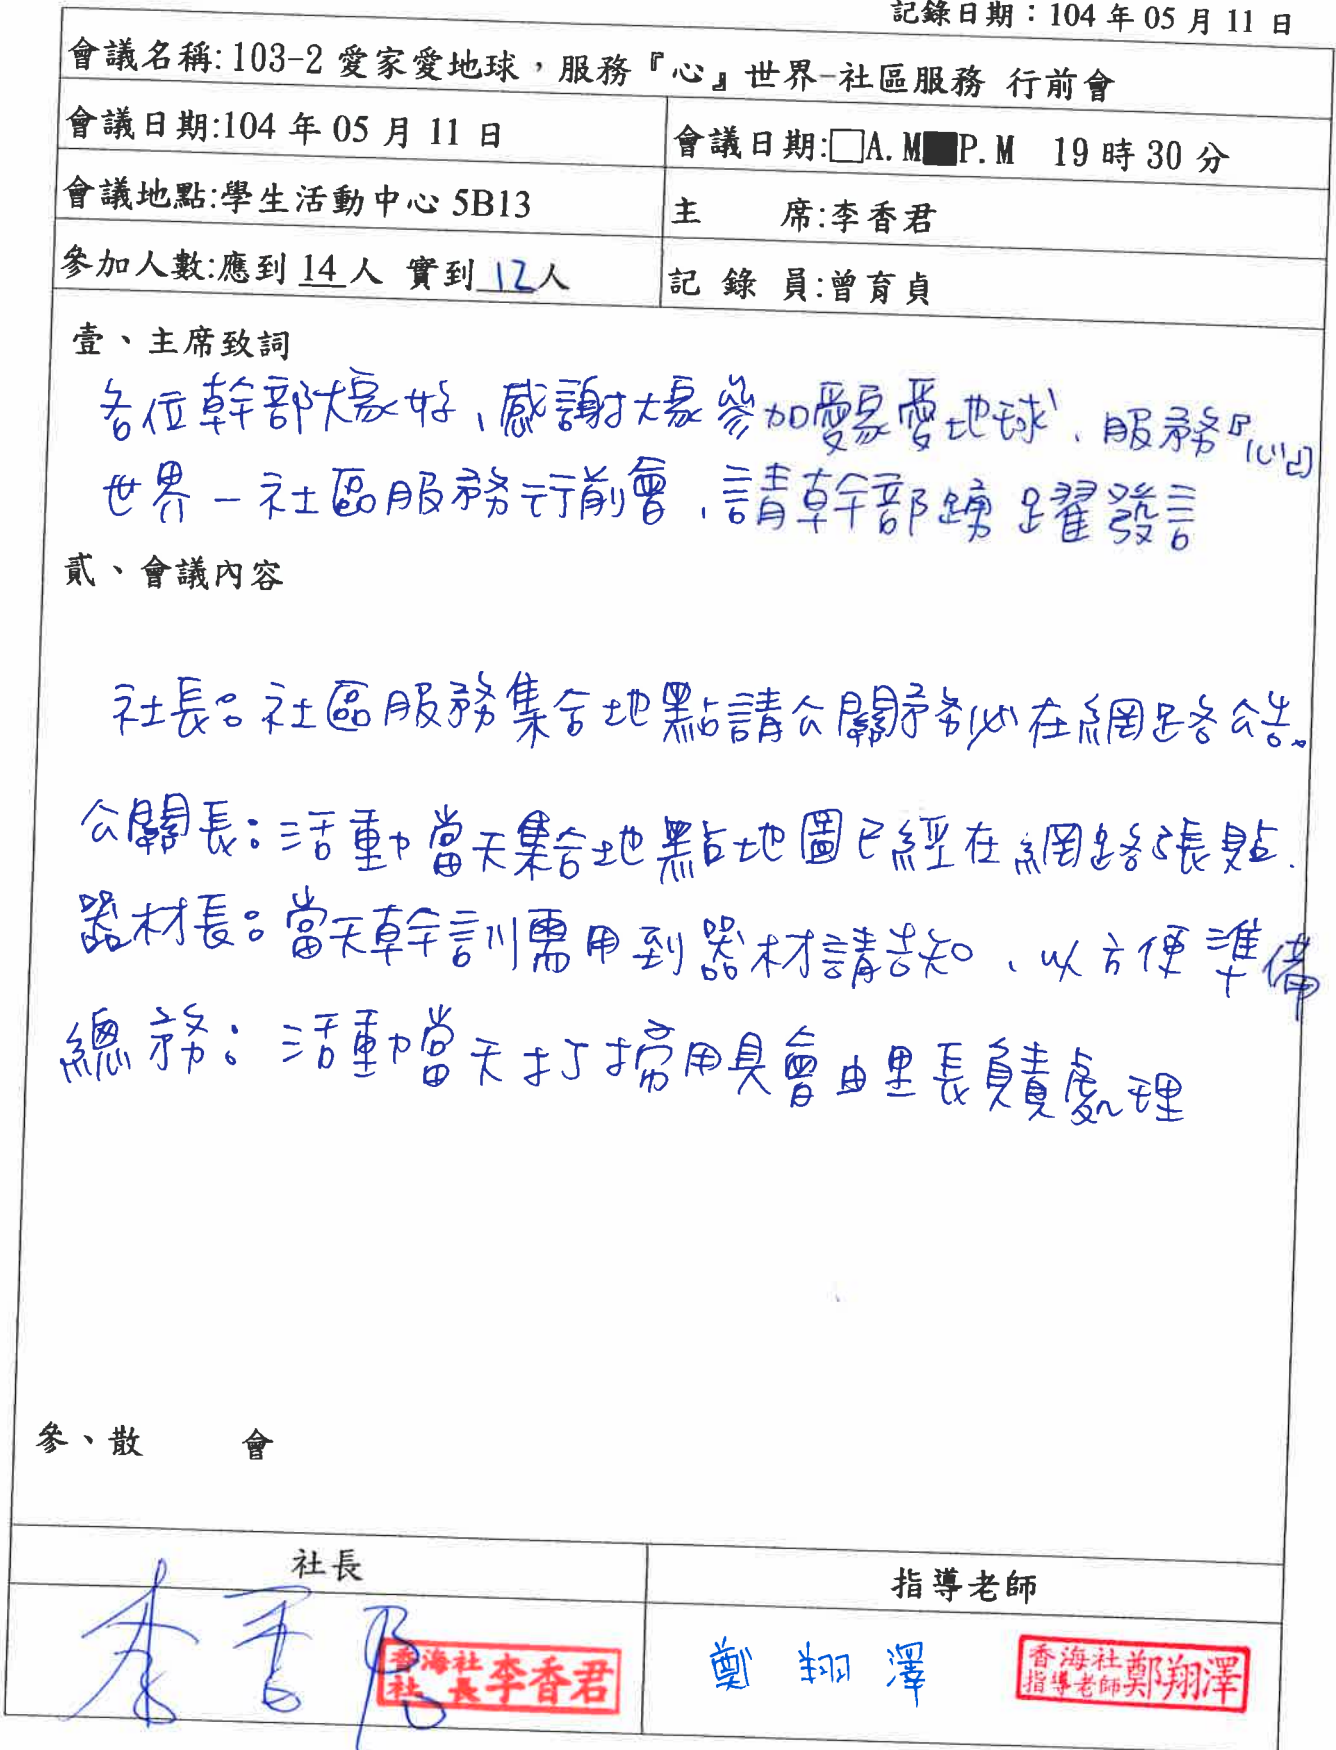 記錄日期：104 年 05 月 11 日
會議名稱:103-2 愛家愛地球，服務『心』世界-社區服務 行前會
會議日期:104 年 05 月 11 日
會議日期:□A.M■P.M 19 時 30 分
會議地點:學生活動中心 5B13
主 席:李香君
參加人數:應到 14 人 實到 12人
記 錄 員:曾育貞
壹、主席致詞
各位幹部大家好、感謝大家參加愛家愛地球、服務『心』
世界－社區服務行前會，請幹部踴躍發言
貳、會議內容
社長：社區服務集合地點請公關務必在網路公告。
公關長：活動當天集合地點地圖已經在網路張貼.
器材長：當天幹訓需用到器材請告知、以方便準備
總務：活動當天打掃用具會由里長負責處理
參、散 會
社長
指導老師
李香君
香海社
社長李香君
鄭翔澤
香海社
指導老師鄭翔澤